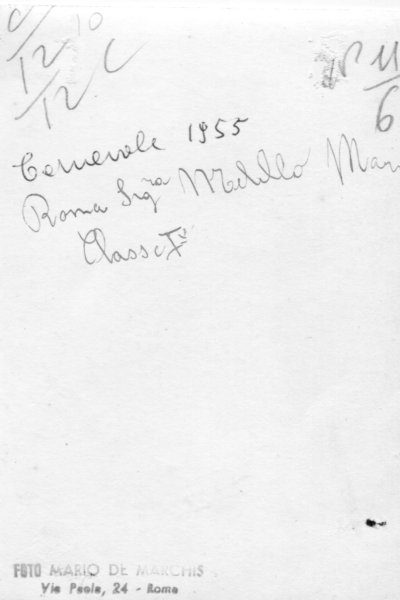 C
12 10
12 C
N° 11
6
Carnevale 1955
Roma Sig.ra Melillo Mari
Classe Iª
FOTO MARIO DE MARCHIS
Via Paola, 24 - Roma